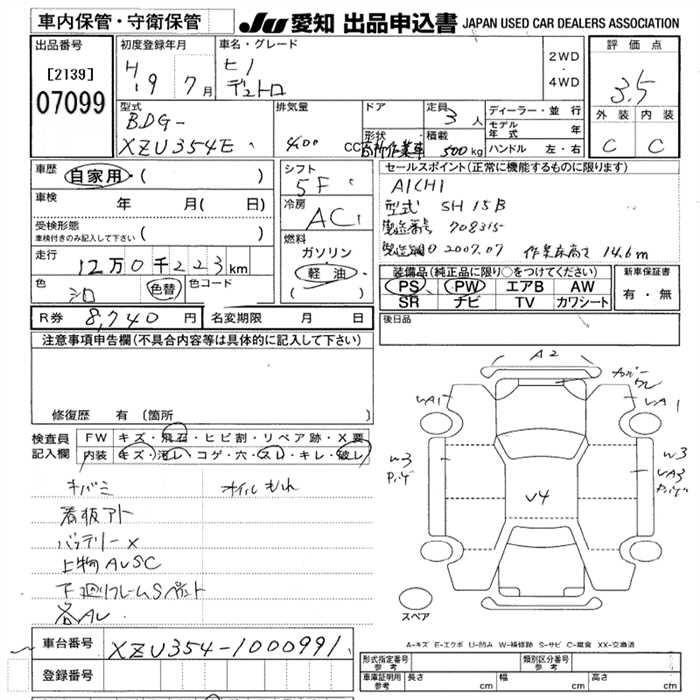 車内保管・守衛保管 JU 愛知 出品申込書 JAPAN USED CAR DEALERS ASSOCIATION
出品番号 [2139] 07099
初度登録年月 H19年 7月
車名・グレード ヒノ デュトロ
2WD・4WD
評価点 3.5
外装 C 内装 C
型式 BDG-XZU354E
排気量 4.00 CC
ドア 形状
定員 3人
積載 500kg
ディーラー・並行
モデル年式 年
ハンドル 左・右
車歴 自家用・( )
車検 年 月( 日)
受検形態 車検付きのみ記入して下さい ( )
走行 12万0千223km
色 シロ 色替 色コード
シフト 5F
冷房 AC
燃料 ガソリン 軽油 ( )
セールスポイント(正常に機能するものに限ります)
AICHI
型式 SH15B
製造番号 708315
2007.07 作業床高さ 14.6m
装備品(純正品に限り○をつけてください)
PS PW エアB AW
SR ナビ TV カワシート
新車保証書 有・無
R券 8,740円 名変期限 月 日
後日品
注意事項申告欄(不具合内容等は具体的に記入して下さい)
修復歴 有 (箇所 )
検査員記入欄
FW キズ・飛石・ヒビ割・リペア跡・X要
内装 キズ・汚レ・コゲ・穴・スレ・キレ・破レ
キバミ オイルもれ
看板アト
バッテリー×
上物AUSC
下廻リフレームSペイント
各AU
A2
UA1
UA1
W3
W3
UA3
V4
スペア
A-キズ E-エクボ U-凹み W-補修跡 S-サビ C-腐食 XX-交換済
車台番号 XZU354-1000991
登録番号
形式指定番号 参考
類別区分番号 参考
車庫証明用 参考 長さ cm 幅 cm 高さ cm